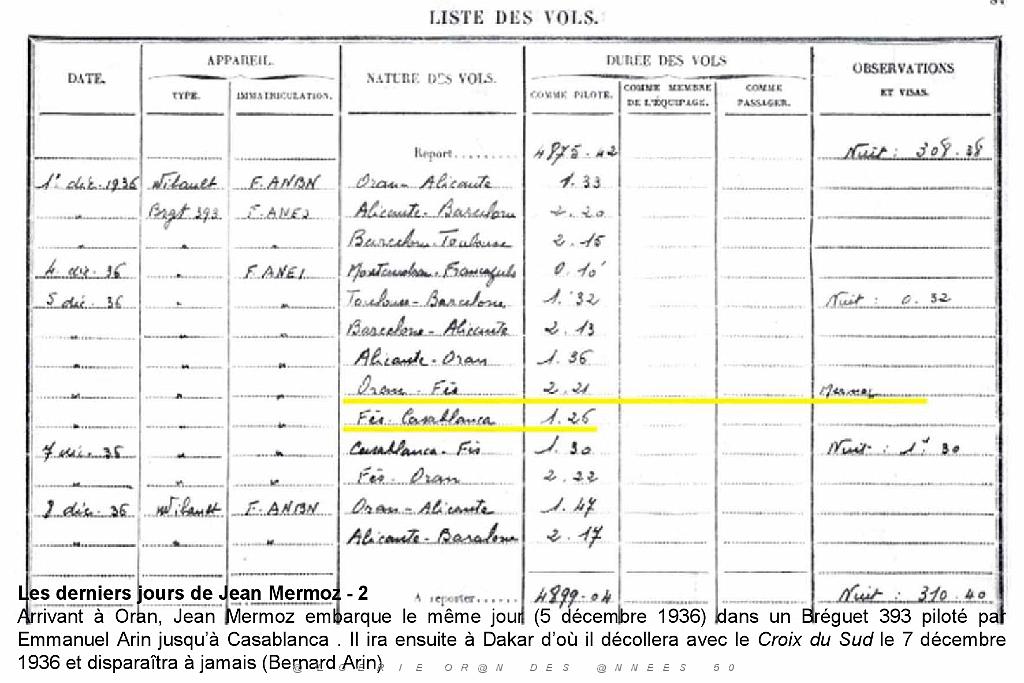 LISTE DES VOLS.
DATE. APPAREIL. NATURE DES VOLS. DURÉE DES VOLS OBSERVATIONS ET VISAS.
TYPE. IMMATRICULATION. COMME PILOTE. COMME MEMBRE DE L'ÉQUIPAGE. COMME PASSAGER.
Report........ 4875.42 Nuit : 308.38
1er déc. 1936 Wibault F.ANBN Oran-Alicante 1.33
" Brgt 393 Alicante-Barcelone 2.20
" " " Barcelone-Toulouse 2.15
4 déc. 36 " 0.10
5 déc. 36 " " Toulouse-Barcelone 1.32 Nuit : 0.32
" " " Barcelone-Alicante 2.13
" " " Alicante-Oran 1.36
" " " Oran-Fès 2.21 Mermoz
" " " Fès-Casablanca 1.26
7 déc. 36 " " Casablanca-Fès 1.30 Nuit : 1.30
" " " Fès-Oran 2.22
8 déc. 36 Wibault F.ANBN Oran-Alicante 1.47
" " " Alicante-Barcelone 2.17
A reporter...... 4899.04 Nuit : 310.40
Les derniers jours de Jean Mermoz - 2
Arrivant à Oran, Jean Mermoz embarque le même jour (5 décembre 1936) dans un Bréguet 393 piloté par
Emmanuel Arin jusqu'à Casablanca . Il ira ensuite à Dakar d'où il décollera avec le Croix du Sud le 7 décembre
1936 et disparaîtra à jamais (Bernard Arin)
@LGERIE OR@N DES @NNEES 50